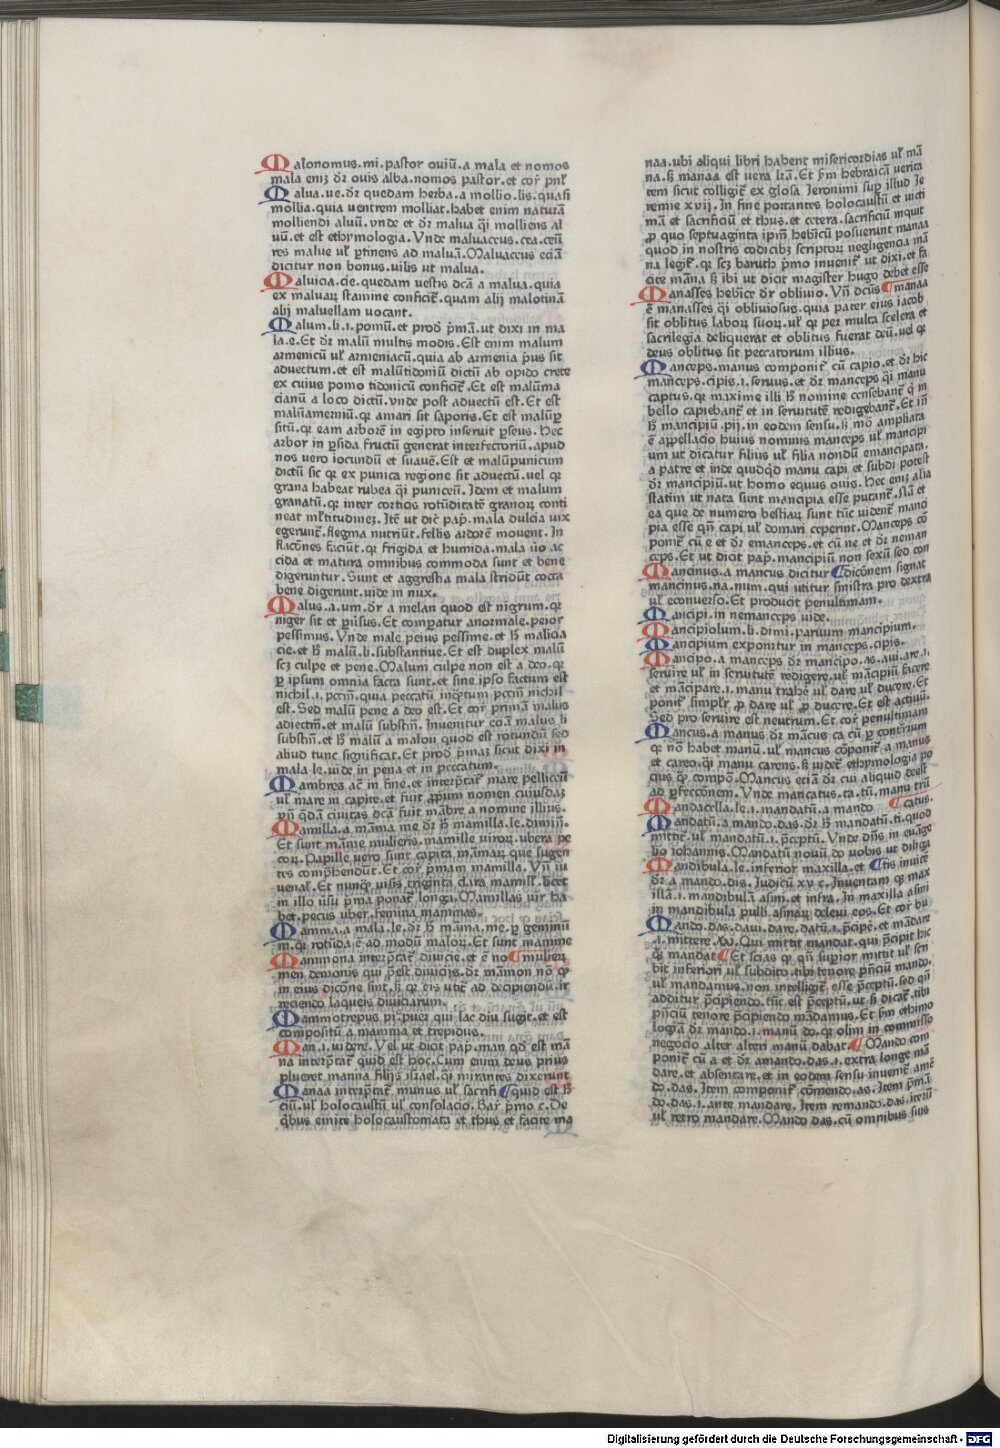 Malonomus.mi.pastor ouiū.a mala et nomos
mala eniꝫ dr̄ ouis alba.nomos pastor.et cor̄ pnl̄
Malua.ue.dr̄ quedam herba.a mollio.lis.quasi
mollia.quia uentrem molliat.habet enim naturā
molliendi aluū.vnde et dr̄ malua q̄i molliens al
uū.et est ethymologia. Vnde maluaceus.cea.ceū
res malue ul̄ ꝑtinens ad maluā.Maluaceus eciā
dicitur non bonus.uilis ut malua.
Maluicia.cie.quedam uestis dc̄a a malua.quia
ex maluaꝝ stamine conficit᷑.quam alij malotinā
alij maluellam uocant.
Malum.li.i.pomū.et prod̄ p̄mā.ut dixi in ma
la.e.Et dr̄ malū multis modis.Est enim malum
armenicū ul̄ armeniacū.quia ab armenia p̄us sit
aduectum.et est malūtidoniū dictū ab opido crete
ex cuius pomo tidonicū conficit᷑.Et est malūma
cianū a loco dictū.vnde post aduectū est.Et est
malūamerniū.qꝛ amari sit saporis.Et est malūꝑ
sitū.qꝛ eam arborē in egipto inseruit ꝑseus.Hec
arbor in ꝑsida fructū generat interfectoriū.apud
nos uero iocundū et suauē.Est et malūpunicum
dictū sic qꝛ ex punica regione sit aduectū.uel qꝛ
grana habeat rubea q̄i puniceū.Idem et malum
granatū.qꝛ inter corticis rotūditatē granoꝝ conti
neat ml̄titudineꝫ.Itē ut dic̄ pap̄.mala dulcia uix
egerunt᷑.flegma nutriūt.fellis ardorē mouent.In
flacōnes faciūt.qꝛ frigida et humida.mala ūo ac
cida et matura omnibus commoda sunt et bene
digeruntur.Sunt et aggrestia mala stridūt cocta
bene digerunt.uide in nux.
Malus.a.um.dr̄ a melan quod est nigrum.qꝛ
niger sit et p̄uisus.Et compatur anormale.peior
pessimus.Vnde male peius pessime.et h̄ malicia
cie.et h̄ malū.li.substantiue.Et est duplex malū
scꝫ culpe et pene.Malum culpe non est a deo.qꝛ
ꝑ ipsum omnia facta sunt.et sine ipso factum est
nichil.i.pccm̄.quia peccatū inc̄ꝑtum pccm̄ nichil
est.Sed malū pene a deo est.Et cor̄ primā malus
adiectm̄.et malū substm̄.Inuenitur eciā malus li
substm̄.et h̄ malū a malon quod est rotundū sed
aliud tunc significat.Et prod̄ p̄maꝫ sicut dixi in
mala le.uide in pena et in peccatum.
Mambres ac̄ in fine.et interp̄tat᷑ mare pelliceū
ul̄ mare in capite.et fuit ꝓprium nomen cuiusdaꝫ
vn̄ q̄dā ciuitas dc̄a fuit mābre a nomine illius.
Mamilla.a māma me dr̄ h̄ mamilla.le.dimin̄.
Et sunt māme mulieris.mamille uiroꝝ.ubera pe
coꝝ.Papille uero sunt capita māmaꝝ que sugen
tes comp̄hendūt.Et cor̄ p̄mam mamilla.Vn̄ iu
uenal̄.Et nunqꝫ uisis triginta clara mamill᷑.licet
in illo iūsu p̄ma ponat᷑ longa.Mamillas uir ha
bet.pecus uber.femina mammas.
Mamma.a mala.le.dr̄ h̄ māma.me.ꝑ geminū
m.qꝛ rotūda ē ad modū maloꝝ.Et sunt mamme
Mammona interp̄tat᷑ diuicie.et ē no¶mulieꝝ
men demonis qui p̄est diuicijs.dr̄ māmon nō qꝫ
in eius dicōne sint.sꝫ qꝛ eis utit᷑ ad decipiendū.ir
reciendo laqueis diuiciarum.
Mammotrepus pi.puer qui lac diu sugit.et est
compositū a mamma et trepidus.
Man.i.uidere.Vel ut dicit pap.man qd̄ est mā
na interp̄tat᷑ quid est hoc.Cum enim deus prius
plueret manna filijs israel.q̄i mirantes dixerunt
Manaa interp̄tat᷑ munus ul̄ sacrifi¶quid est h̄
ciū.ul̄ holocaustū ul̄ consolacio.Bar̄ p̄mo c.De
q̄bus emite holocaustomata et thus et facite ma
naa.ubi aliqui libri habent misericordias ul̄ mā
na.sꝫ manaa est uera lr̄a.Et ẜm hebraicā uerita
tem sicut colligit᷑ ex glosa Jeronimi suꝑ illud Je
remie xvij.In fine portantes holocaustū et uicti
mā et sacrificiū et thus.et cetera.sacrificiū inquit
ꝓ quo septuaginta ipm̄ heb̄icū posuerunt manaa
quod in nostris codicibꝫ scriptoꝝ negligencia mā
na legit᷑.qꝛ scꝫ baruth p̄mo inuenit᷑ ut dixi.et fa
cite māna sꝫ ibi ut dicit magister hugo debet esse
Manasses heb̄ice dr̄ obliuio.Vn̄ dc̄us¶manaa
ē manasses q̄i obliuiosus.quia pater eius iacob
sit oblitus laboꝝ suoꝝ.ul̄ qꝛ per multa scelera et
sacrilegia deliquerat et oblitus fuerat deū.uel qꝛ
deus oblitus sit peccatorum illius.
Manceps.manus componit᷑ cū capio.et dr̄ hic
manceps.cipis.i.seruus.et dr̄ manceps q̄i manu
captus.qꝛ maxime illi h̄ nomine censebant᷑ q̄ in
bello capiebant᷑ et in seruitutē redigebant᷑.Et in̄
h̄ mancipiū.pij.in eodem sensu.sꝫ mō ampliata
ē appellacio huius nominis manceps ul̄ mancipi
um ut dicatur filius ul̄ filia nondū emancipata.
a patre et inde quidqd̄ manu capi et subdi potest
dr̄ mancipiū.ut homo equus ouis.Hec eniꝫ alia
statim ut nata sunt mancipia esse putant᷑.sꝫ et
ea que de numero bestiaꝝ sunt tūc uident᷑ manci
pia esse qn̄ capi ul̄ domari ceperint.Manceps cō
ponit᷑ cū e et dr̄ emanceps.et cū ne et dr̄ neman
ceps.Et ut dicit pap̄.mancipiū non sexū sed con
Mancinus.a mancus dicitur¶dicōnem signat
mancinus.na.num.qui utitur sinistra pro dextra
ul̄ econuerso.Et producit penultimam.
Mancipi.in nemanceps uide.
Mancipiolum.li.dimi.paruum mancipium.
Mancipium exponitur in manceps.cipis.
Mancipo.a manceps dr̄ mancipo.as.aui.are.i.
seruire ul̄ in seruitutē redigere.ul̄ mācipiū facere
et mācipare.i.manu trahē ul̄ dare ul̄ ducere.Et
ponit᷑ simplr̄ ꝓ dare ul̄ ꝓ ducere.Et est actiuū.
Sed pro seruire est neutrum.Et cor̄ penultimam
Mancus.a manus dr̄ mācus ca cū ꝑ contrariū
qꝛ nō habet manū.ul̄ mancus cōponit᷑ a manus
et careo.q̄i manu carens.sꝫ uidet᷑ ethymologia po
cius qꝫ compō.Mancus eciā dr̄ cui aliquid deest
ad ꝑfecconem.Vnde mancatus.ta.tū.manu trū
Mandacella.le.i.mandatū.a mando ¶catus.
Mandatū.a mando.das.dr̄ h̄ mandatū.ti.quod
mittit᷑ ul̄ mandatū.i.p̄ceptū.Vnde dn̄s in euāge
lio iohannis.Mandatū nouū do uobis ut diliga
Mandibula.le.inferior maxilla.et ¶tis inuicē
dr̄ a mando.dis.Judicū xv c.Inuentam qꝫ max
illā.i.mandibulā asini.et infra.In maxilla asini
in mandibula pulli asinaꝝ deleui eos.Et cor̄ bu
Mando.das.daui.dare.datū.i.p̄cipe.et mādare
.i.mittere.xxj.Qui mittit mandat.qui p̄cipit hic
qꝫ mandat¶Et scias qꝫ qn̄ suꝑior mittit ul̄ scri
bit inferiori ul̄ subdito.tibi tenore p̄nciū mando.
ul̄ mandamus.non intelligit᷑ esse p̄ceptū.sed qn̄
additur p̄cipiendo.tūc est p̄ceptū.ut si dicat᷑.tibi
p̄nciū tenore p̄cipiendo mādamus.Et ẜm ethimo
logiā dr̄ mando.i.manū do.qꝫ olim in commisso
negocio alter alteri manū dabat.¶Mando com
ponit᷑ cū a et dr̄ amando.das.i.extra longe mā
dare.et absentare.et in eodem sensu inuenit᷑ amē
do.das.Item componit᷑ comendo.as.Item p̄mā
do.das.i.ante mandare.Item remando.das.iterū
ul̄ retro mandare.Mando das.cū omnibus suis
Digitalisierung gefördert durch die Deutsche Forschungsgemeinschaft - DFG